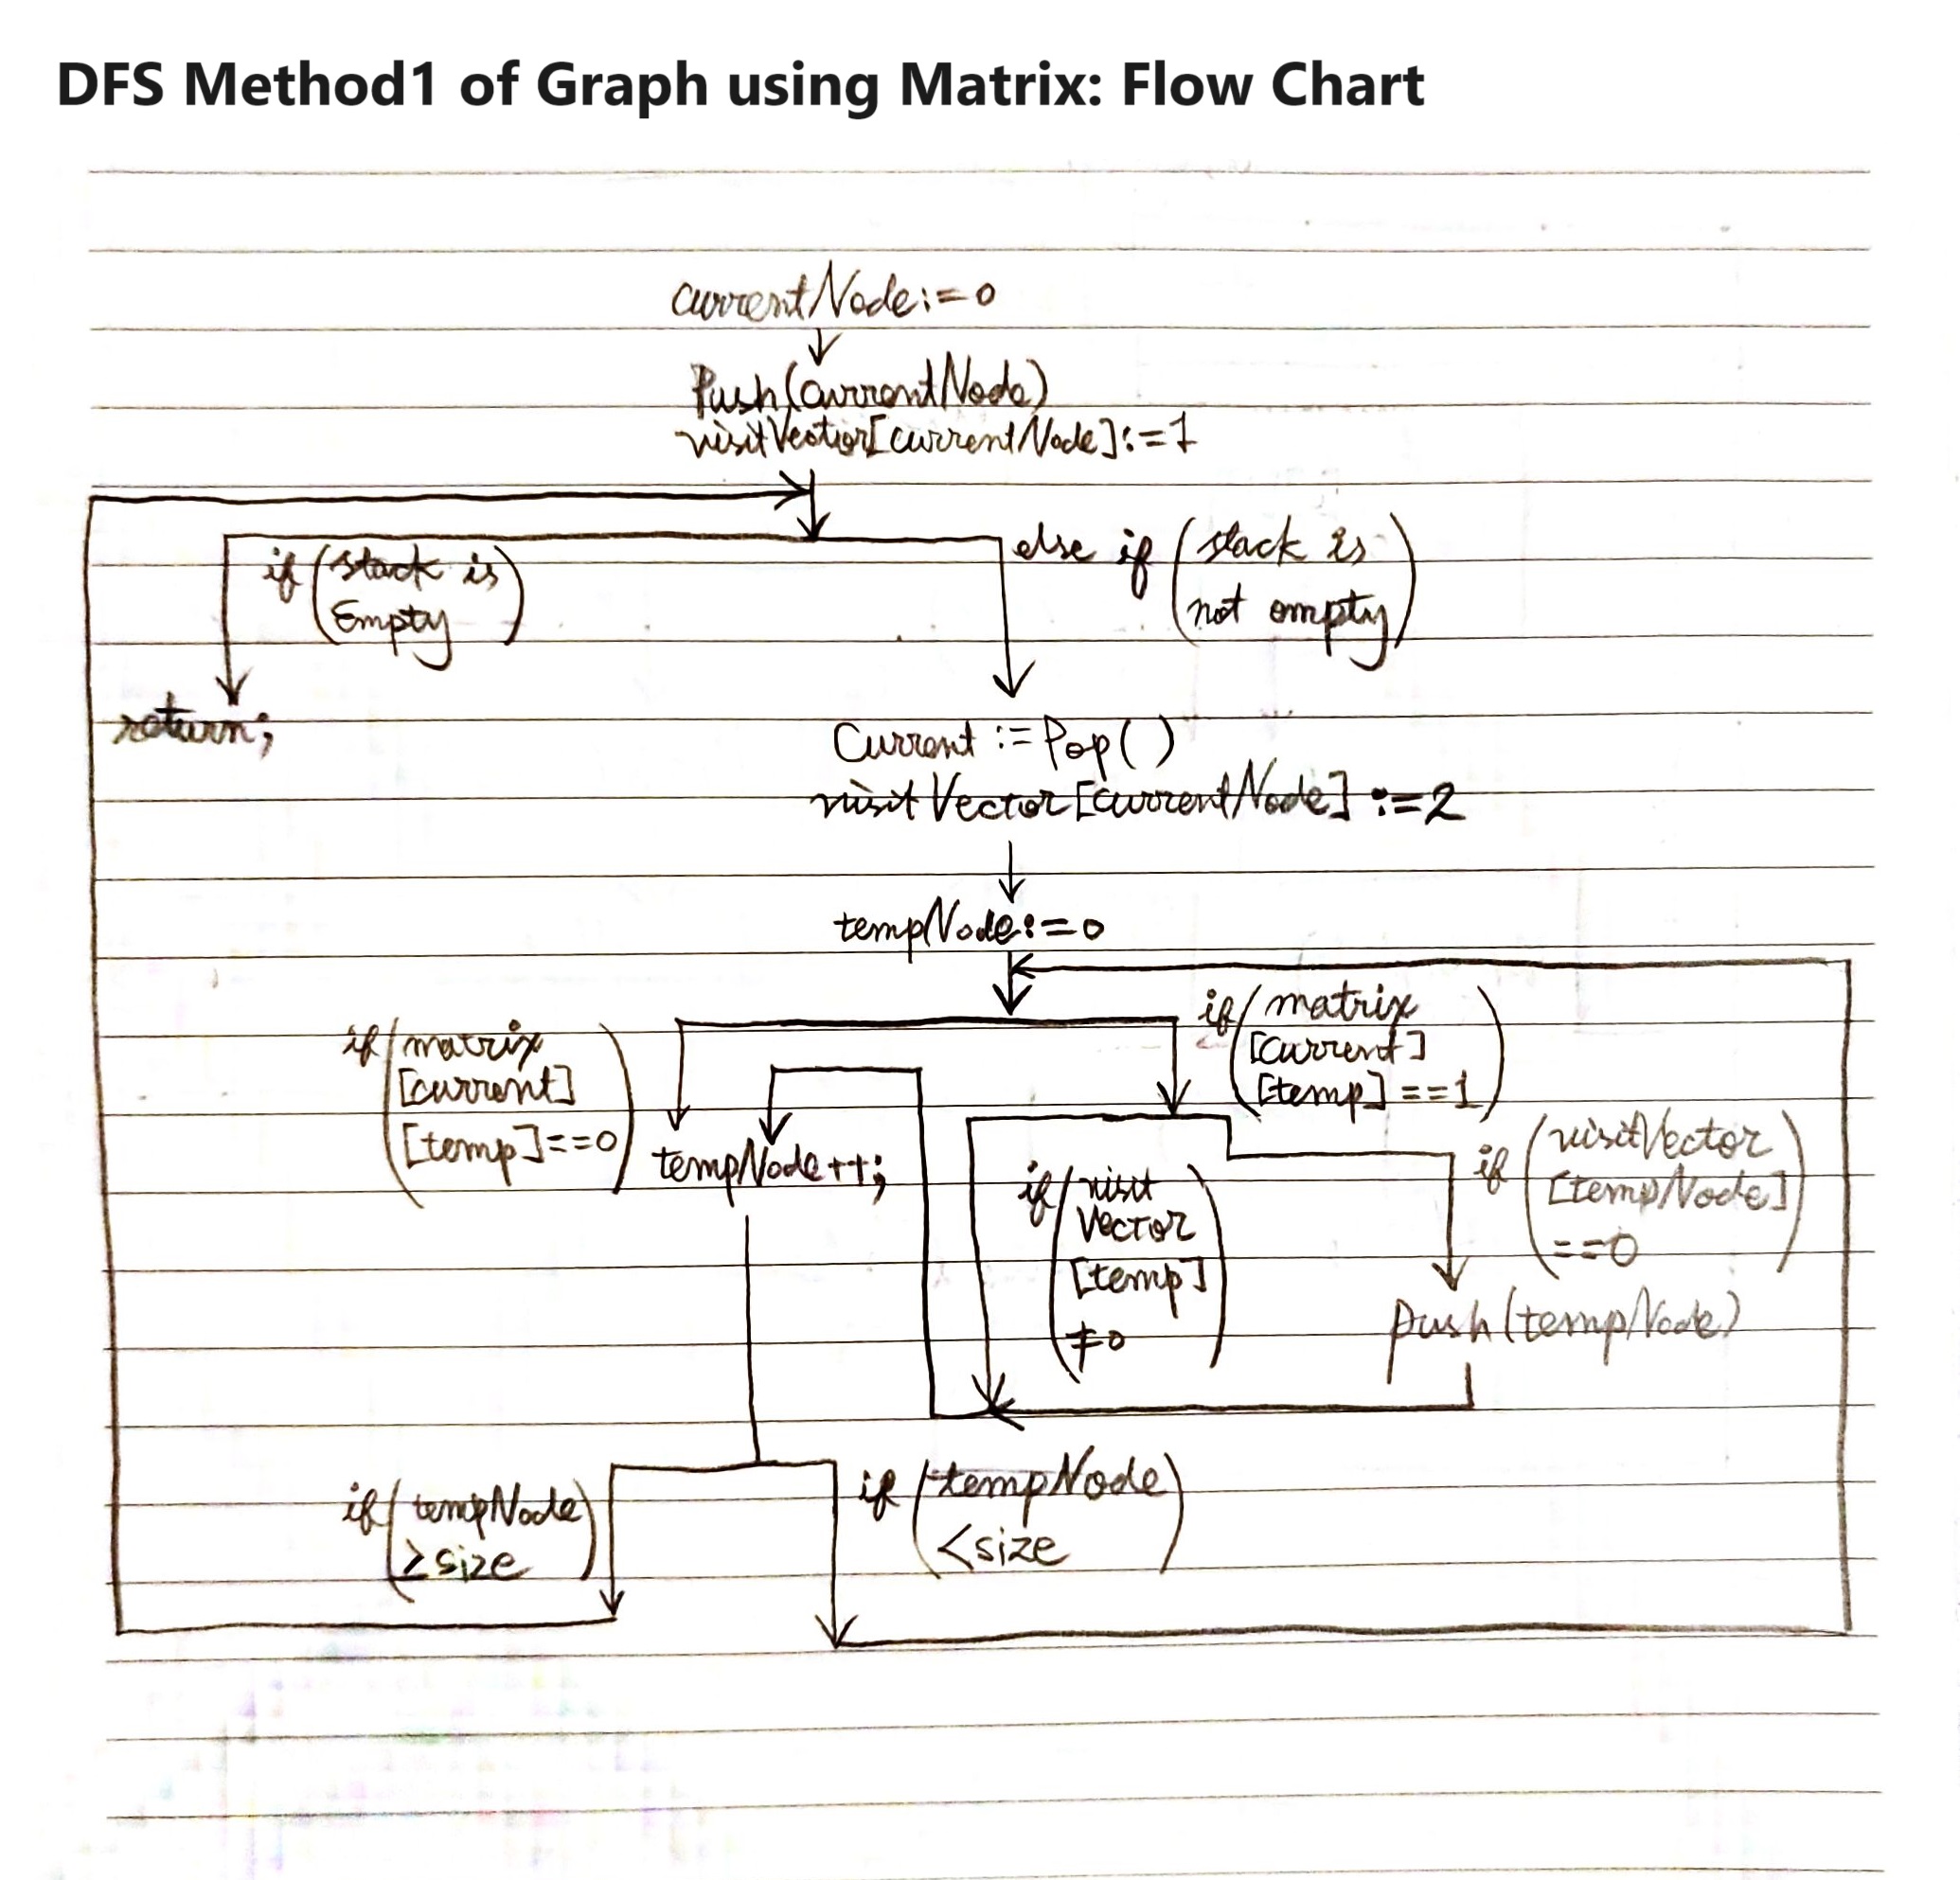 DFS Method1 of Graph using Matrix: Flow Chart
currentNode:=0
Push(currentNode)
visitVector[currentNode]:=1
if (stack is
Empty)
else if (stack is
not empty)
return;
Current := Pop()
visitVector[currentNode] :=2
tempNode:=0
if (matrix
[current]
[temp]==0)
if (matrix
[current]
[temp]==1)
tempNode++;
if (visit
Vector
[temp]
≠0)
if (visitVector
[tempNode]
==0)
push(tempNode)
if (tempNode
≥size)
if (tempNode
<size)